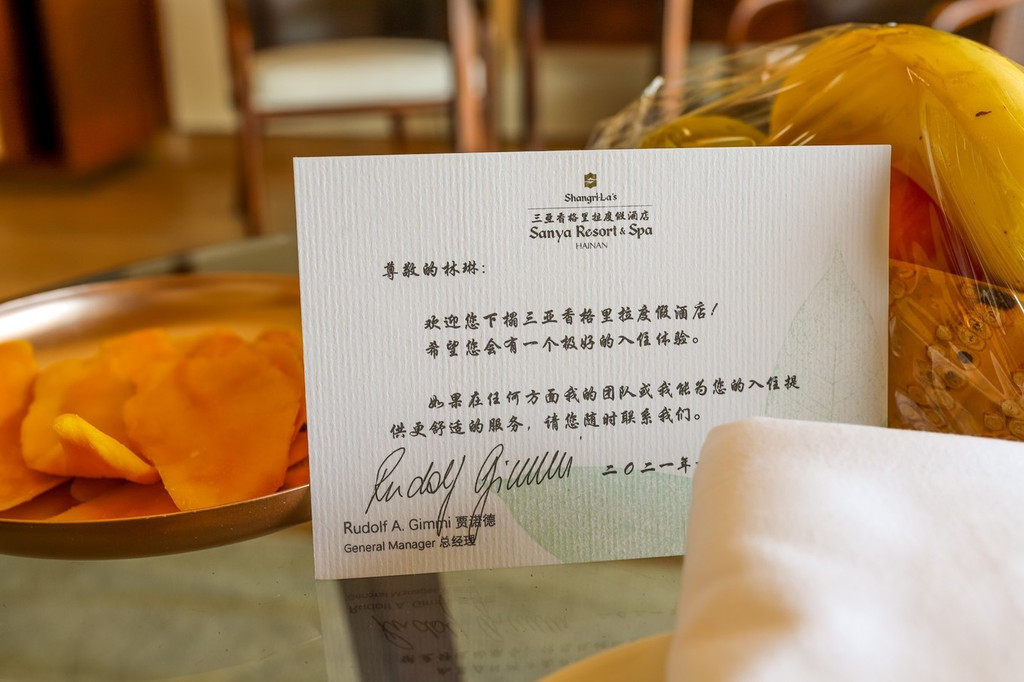 Shangri-La's
三亚香格里拉度假酒店
Sanya Resort & Spa
HAINAN
尊敬的林琳：
欢迎您下榻三亚香格里拉度假酒店！
希望您会有一个极好的入住体验。
如果在任何方面我的团队或我能为您的入住提
供更舒适的服务，请您随时联系我们。
Rudolf Gimmi
二〇二一年
Rudolf A. Gimmi 贾诺德
General Manager 总经理